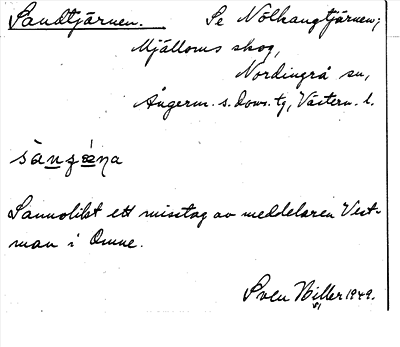 Sandtjärnen. Se Nölhaugtjärnen;
Mjälloms skog,
Nordingrå sn,
Ångerm. s. doms. tg, Västern. l.
Sannolikt ett misstag av meddelaren Vest-
man i Omne.
Sven Hiller 1949.